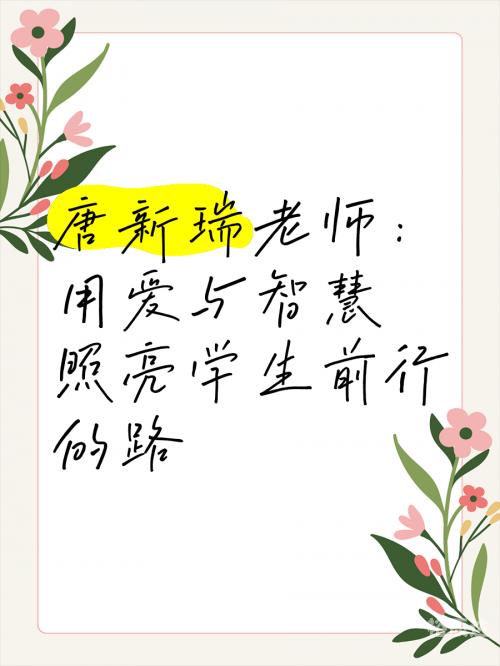 唐新瑞老师：
用爱与智慧
照亮学生前行
的路